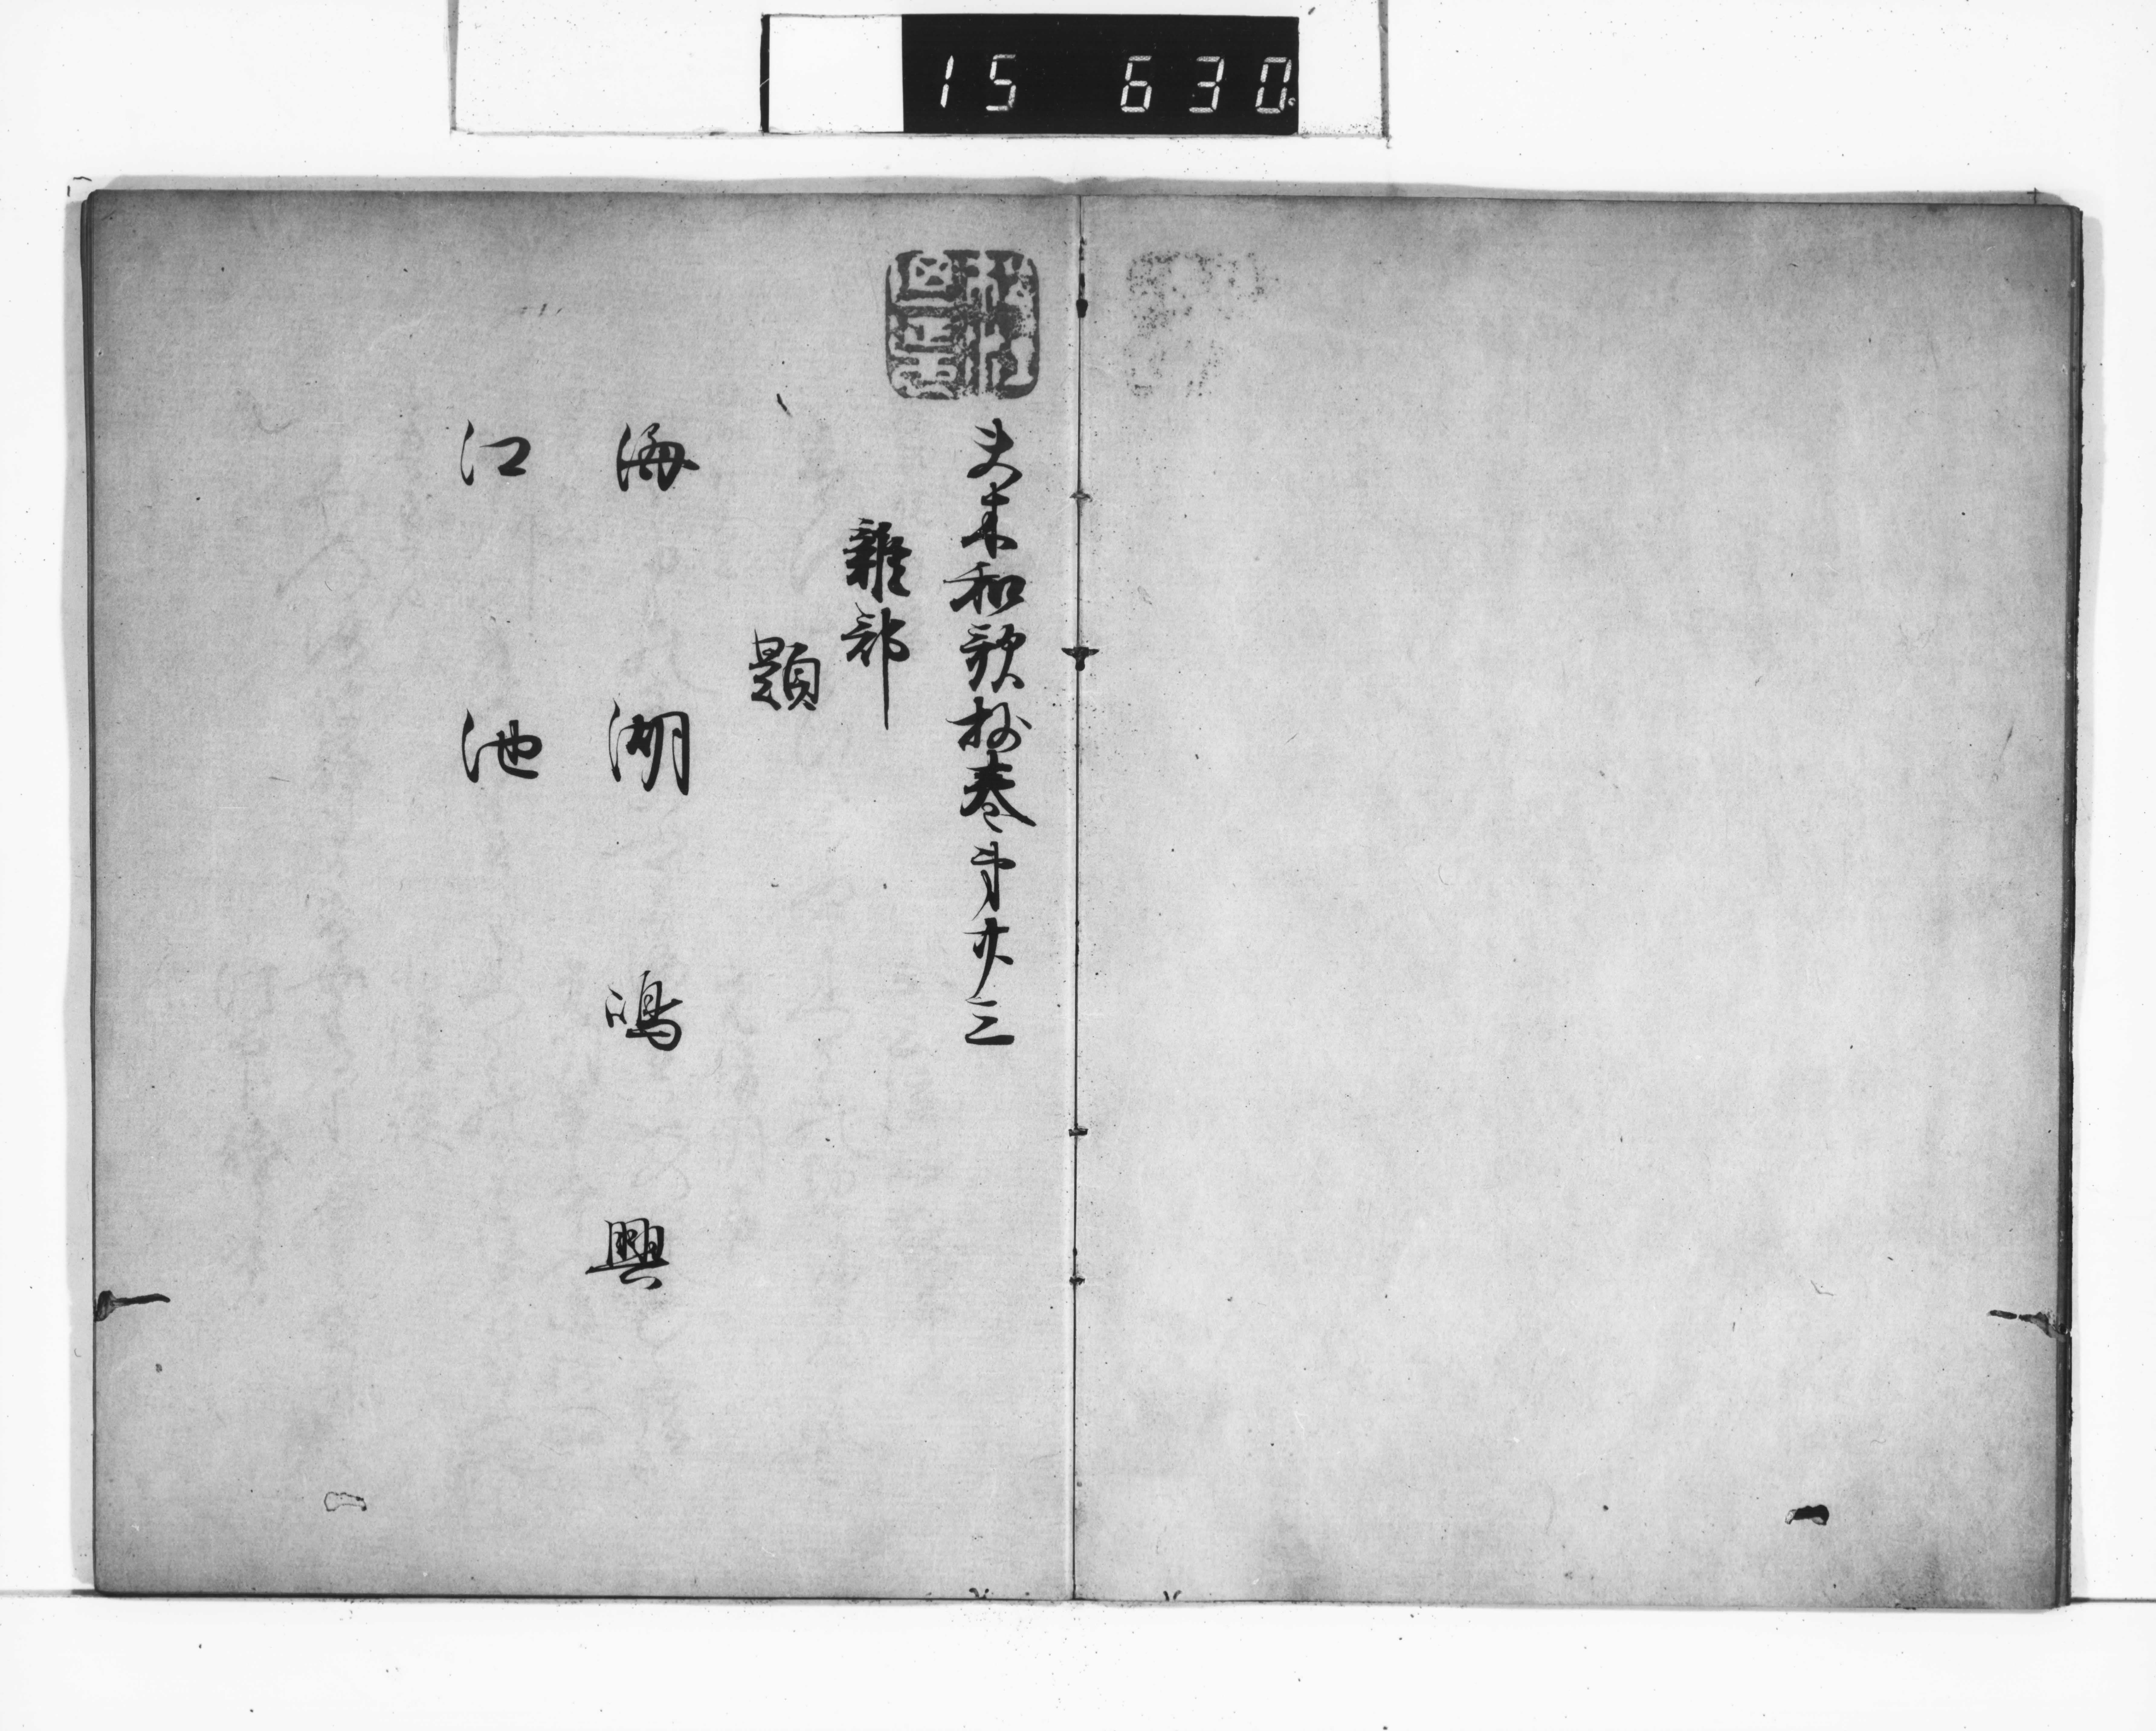 15 630
夫木和歌抄巻第廿三
雜部
題
海 湖 嶋 興
江 池